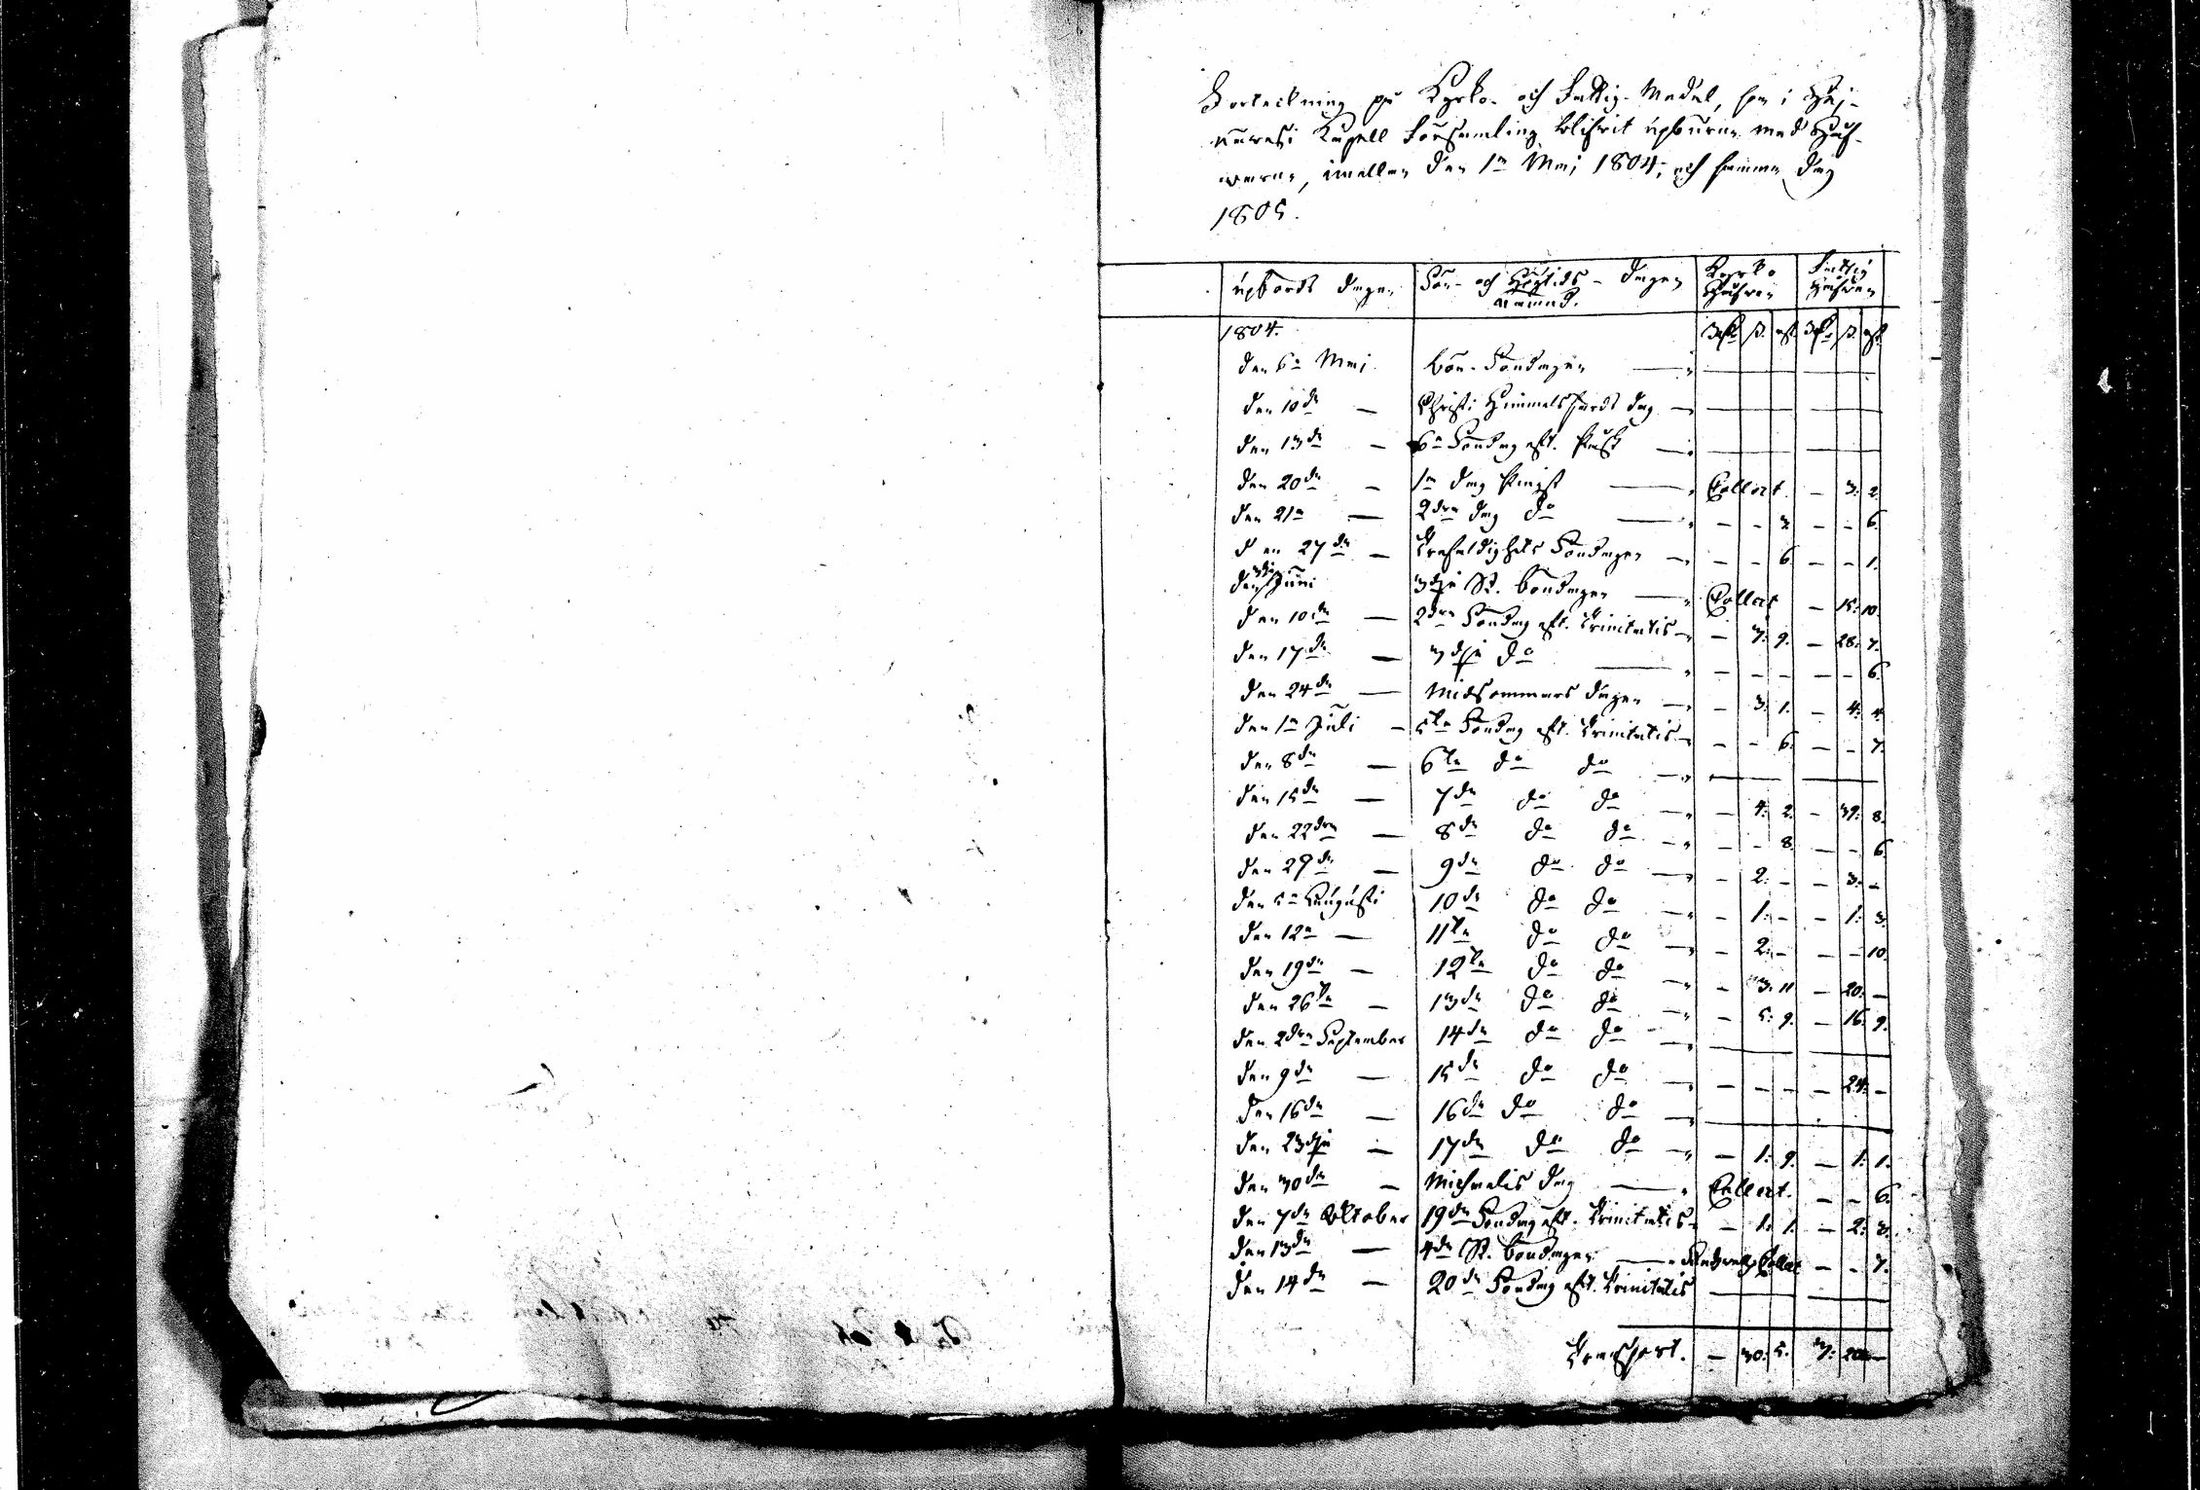 Förteckning på Kyrko- och Fattig-Medel, som i Haj-
naresi Kapell Församling blifvit upburne med Håf-
warne, imellan den 1n Maj 1804, och samma dag
1805.
Upbörds dagen Sön- och Högtids-dagens Kyrko Fattig
namnd. Håfven Håfven
1804. Rdr ß. rst. Rdr ß. rst.
den 6n Maj Bön-Söndagen
den 10de — Christi Himmelsfärds dag
den 13de — 6te Söndag eft. Påsk
den 20de — 1n dag Pingst Collect. — 3: 2.
den 21n — 2dra dag do — — 3. — — 6.
den 27de — Trefaldighets Söndagen — — 6. — — 1.
den 3dje Juni 3dje St. Böndagen Collect — 15: 10.
den 10de — 2dra Söndag eft. Trinitatis — 7: 9. — 28: 7.
den 17de — 3dje do — — — — — 6.
den 24de — Midsommars dagen — 3: 1. — 4: 4.
den 1n Juli — 5te Söndag eft. Trinitatis — — 6. — — 7.
den 8de — 6te do do
den 15de — 7de do do — 4: 2. — 39: 8.
den 22dra — 8de do do — — 8. — — 6.
den 29de — 9de do do — 2: — — 3: —
den 5n Augusti 10de do do — 1: — — 1: 3.
den 12n — 11te do do — 2: — — — 10.
den 19de — 12te do do — 3: 11 — 20: —
den 26te — 13de do do — 5: 9. — 16: 9.
den 2dra September 14de do do
den 9de — 15de do do — — — — 24: —
den 16de — 16de do do
den 23dje — 17de do do — 1: 9. — 1: 1.
den 30de — Michaelis dag Collect. — — 6.
den 7de Oktober 19de Söndag eft. Trinitatis — 1: 1. — 2: 3.
den 13de — 4de St. Böndagen Collect — — 7.
den 14de — 20de Söndag eft. Trinitatis
Transport. — 30: 5. 3: 20: —